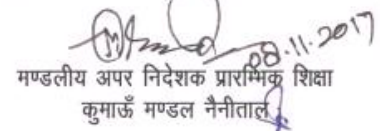 08.11.2017
मण्डलीय अपर निदेशक प्रारम्भिक शिक्षा
कुमाऊँ मण्डल नैनीताल